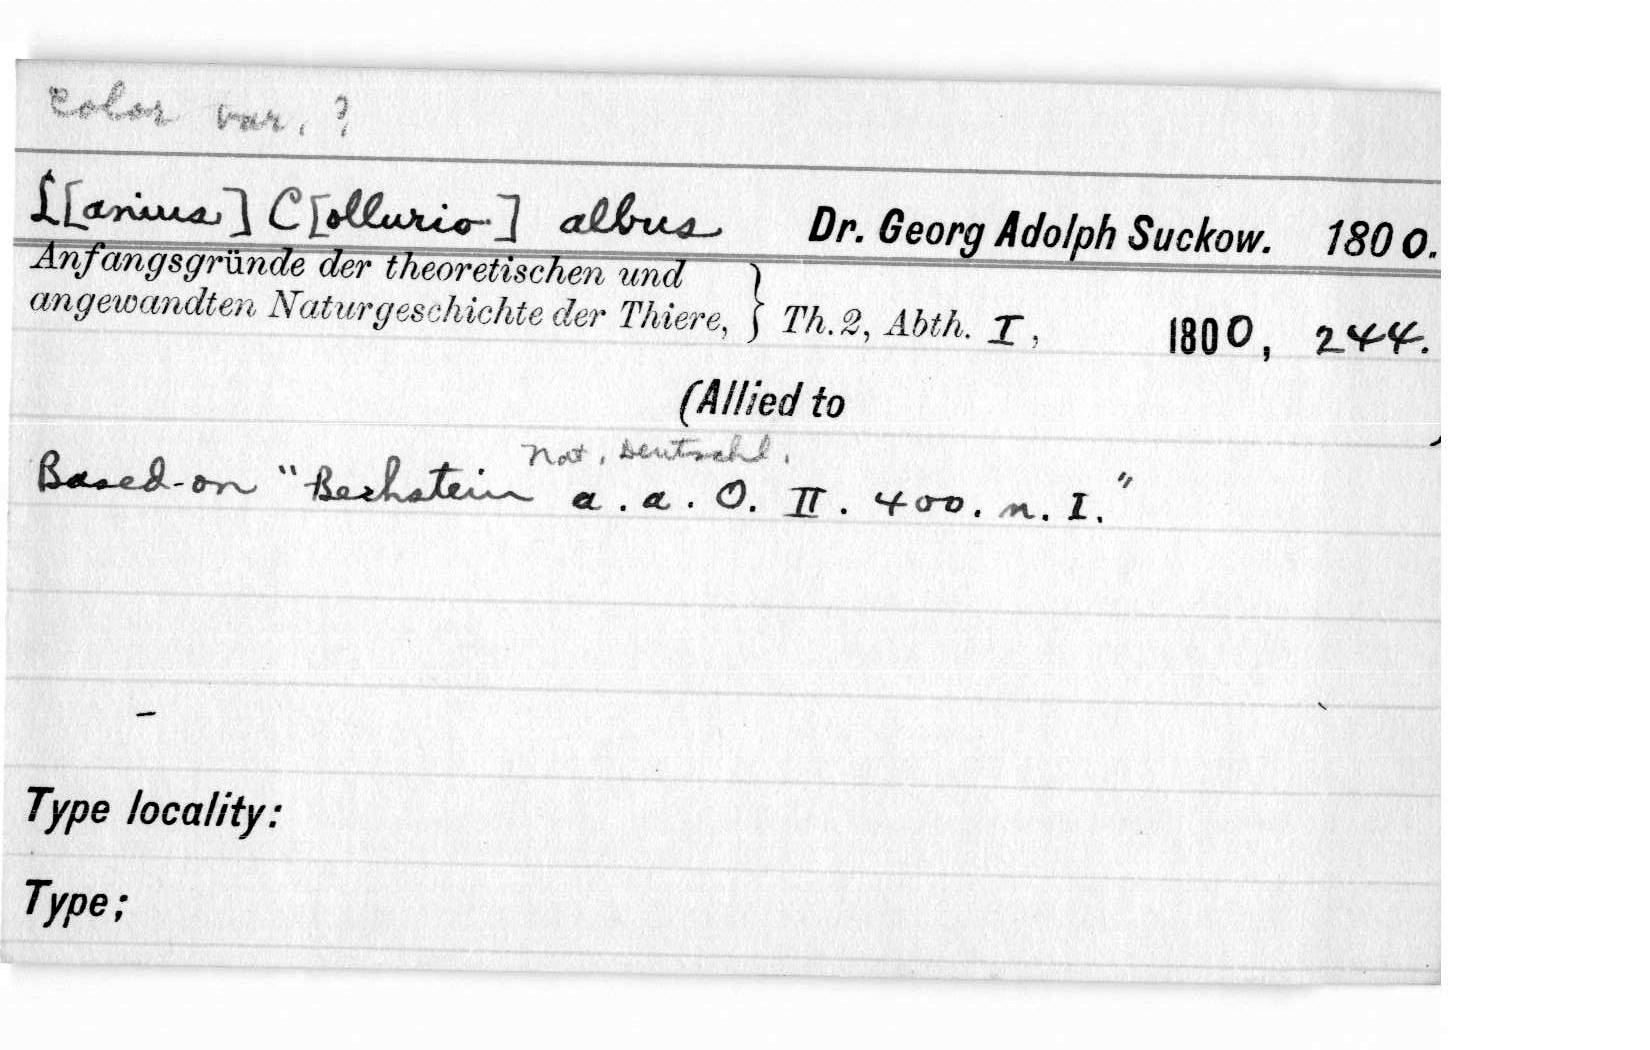 color var. ?
L[anius] C[ollurio] albus Dr. Georg Adolph Suckow. 1800.
Anfangsgründe der theoretischen und
angewandten Naturgeschichte der Thiere, } Th. 2, Abth. I, 1800, 244.
(Allied to
Nat. Deutschl.
Based on "Bechstein a. a. O. II. 400. n. I."
Type locality:
Type;